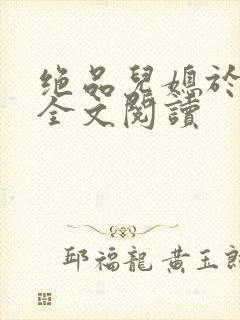 绝品兒媳於
全文閱讀
邱福龍 黄玉郎